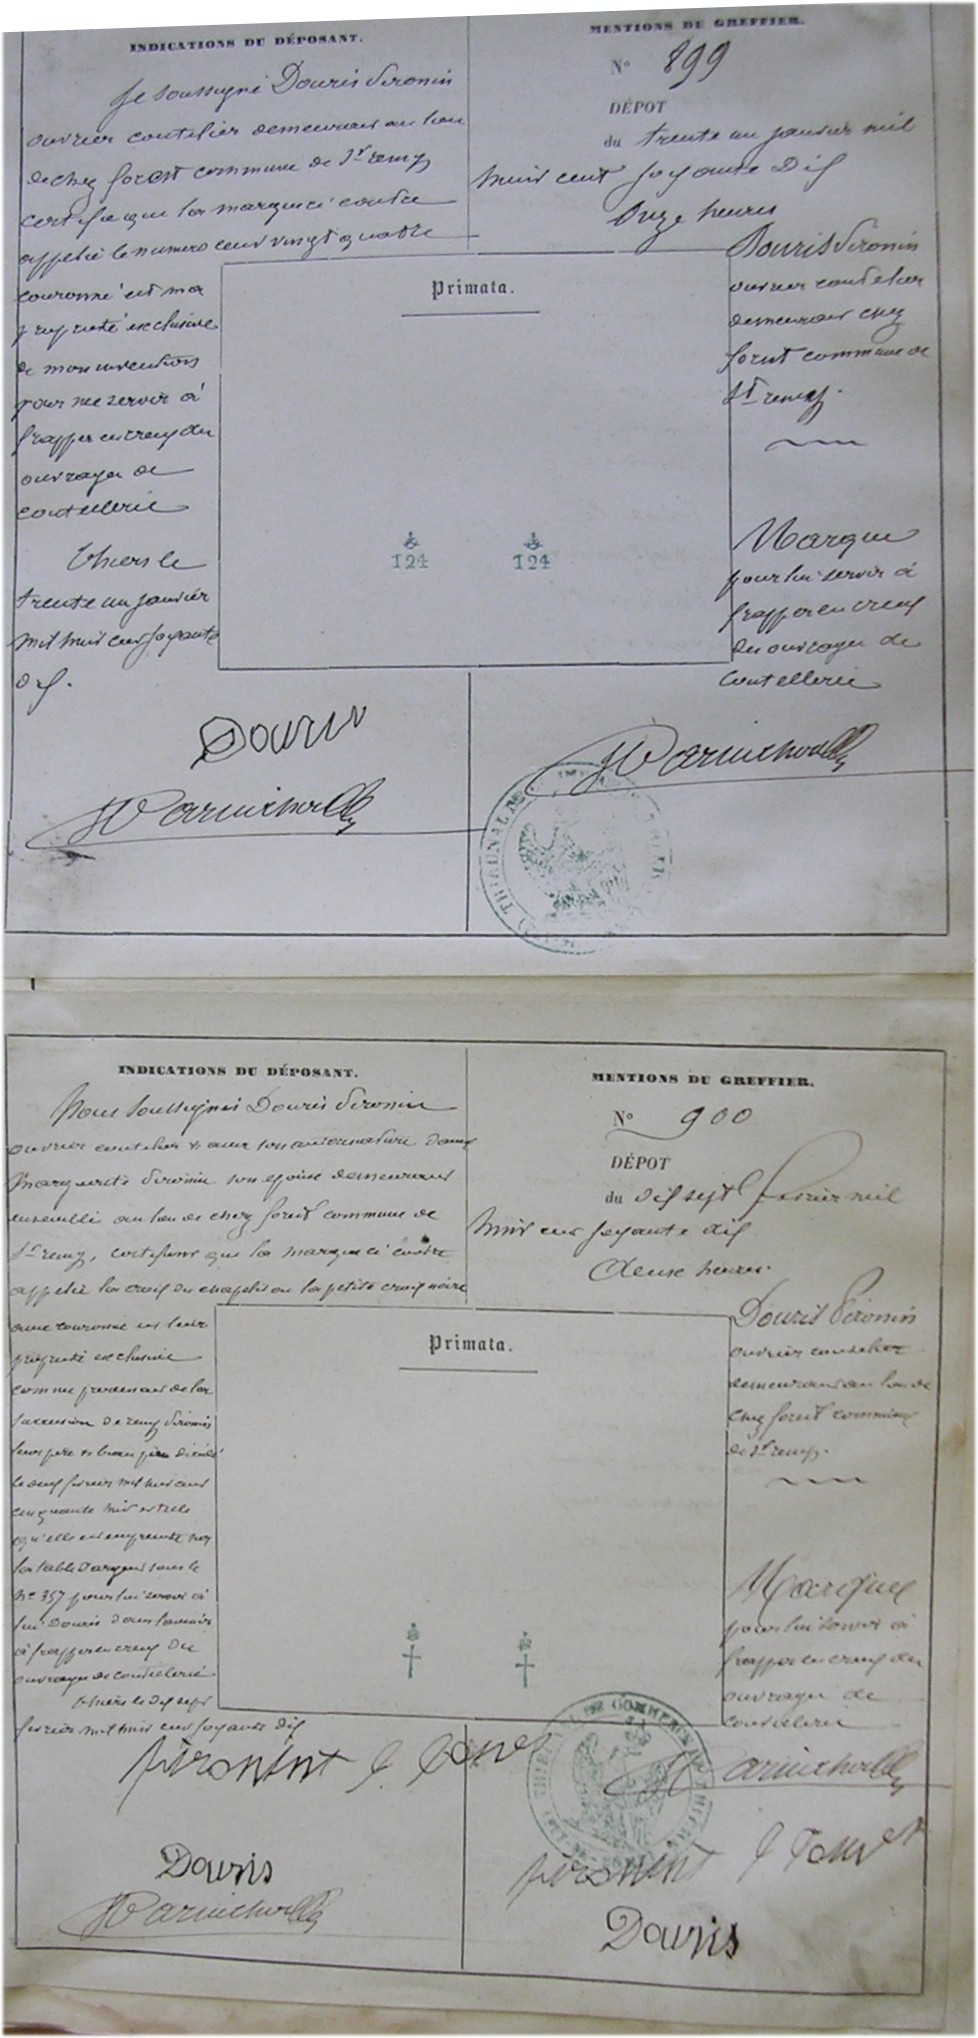 INDICATIONS DU DÉPOSANT.
Je soussigné Douris Fironin
ouvrier coutelier demeurant au lieu
de chez forest commune de St remy
certifie que la marque ci contre
appelée le numero cent vingt quatre
couronné est ma
propriété exclusive
de mon invention
pour me servir à
frapper en creux du
ouvrages de
coutellerie
Thiers le
trente un janvier
mil huit cent soixante
dix.
Douris
MENTIONS DU GREFFIER.
No 899
DÉPOT
du trente un janvier mil
huit cent soixante Dix
Onze heures
Primata.
124 124
Douris Fironin
ouvrier coutelier
demeurant chez
forest commune de
St remy.
Marque
pour lui servir à
frapper en creux
du ouvrages de
Coutellerie
INDICATIONS DU DÉPOSANT.
Nous soussignés Douris Fironin
ouvrier coutelier & avec son autorisation dame
Marguerite Fironin son epouse demeurant
ensemble au lieu de chez forest commune de
St remy, certifions que la marque ci contre
appelée la croix du chapelet ou la petite croix noire
avec couronne est leur
propriété exclusive
comme provenant de la
succession de remy Fironin
leur père & beau père décédé
le deux fevrier mil huit cent
cinquante huit et telle
qu'elle est empreinte sur
la table d'argent sous le
No 357 pour lui servir à
lui Douris dans l'avenir
à frapper en creux du
ouvrages de coutellerie
Thiers le dix sept
fevrier mil huit cent soixante dix
Douris
MENTIONS DU GREFFIER.
No 900
DÉPOT
du dix sept fevrier mil
huit cent soixante dix
Deux heures.
Primata.
Douris Fironin
ouvrier coutelier
demeurant au lieu de
chez forest commune
de St remy.
Marque
pour lui servir à
frapper en creux du
ouvrages de
coutellerie
TRIBUNAL DE COMMERCE
Douris